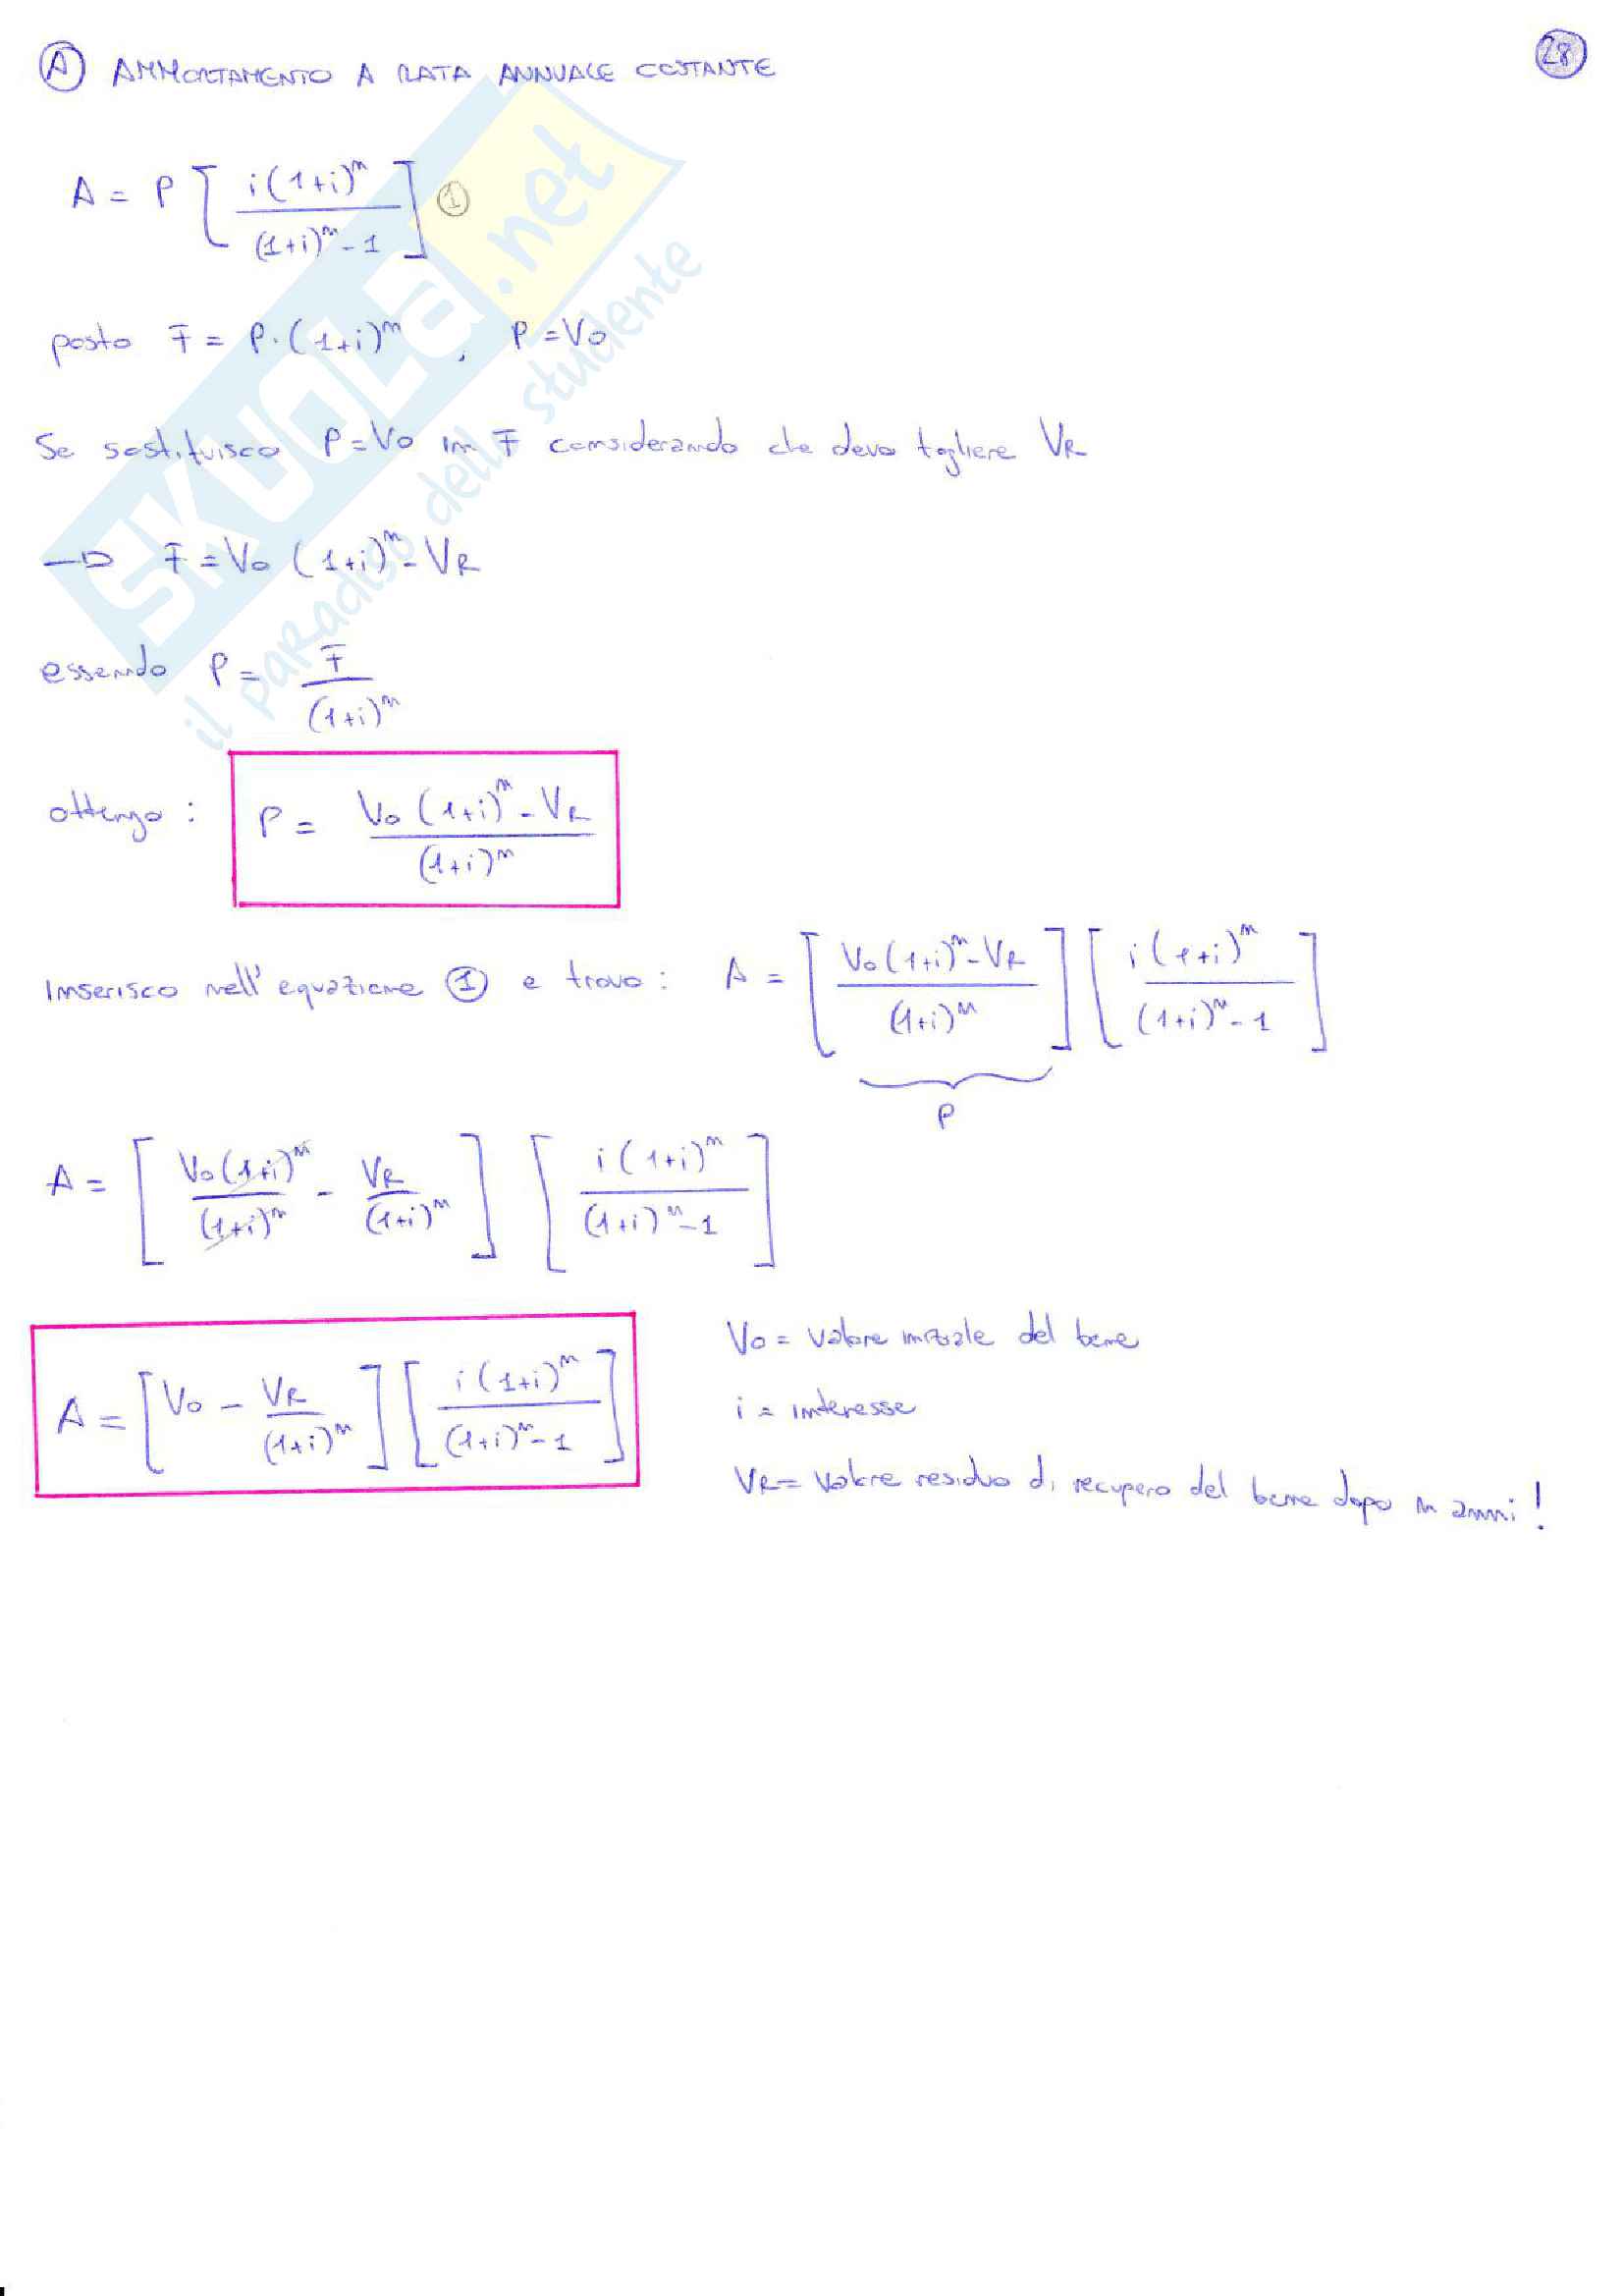 Ⓐ AMMORTAMENTO A RATA ANNUALE COSTANTE
28
A = P [ i(1+i)^n / ((1+i)^n - 1) ] ①
posto F = P·(1+i)^n , P = V0
Se sostituisco P=V0 in F considerando che devo togliere VR
→ F = V0 (1+i)^n - VR
essendo P = F / (1+i)^n
ottengo : P = (V0 (1+i)^n - VR) / (1+i)^n
Inserisco nell'equazione ① e trovo : A = [ (V0(1+i)^n - VR) / (1+i)^n ] [ i(1+i)^n / ((1+i)^n - 1) ]
P
A = [ V0(1+i)^n / (1+i)^n - VR / (1+i)^n ] [ i(1+i)^n / ((1+i)^n - 1) ]
A = [ V0 - VR / (1+i)^n ] [ i(1+i)^n / ((1+i)^n - 1) ]
V0 = valore iniziale del bene
i = interesse
VR = valore residuo di recupero del bene dopo n anni !
SKUOLA.net
il paradiso dello studente